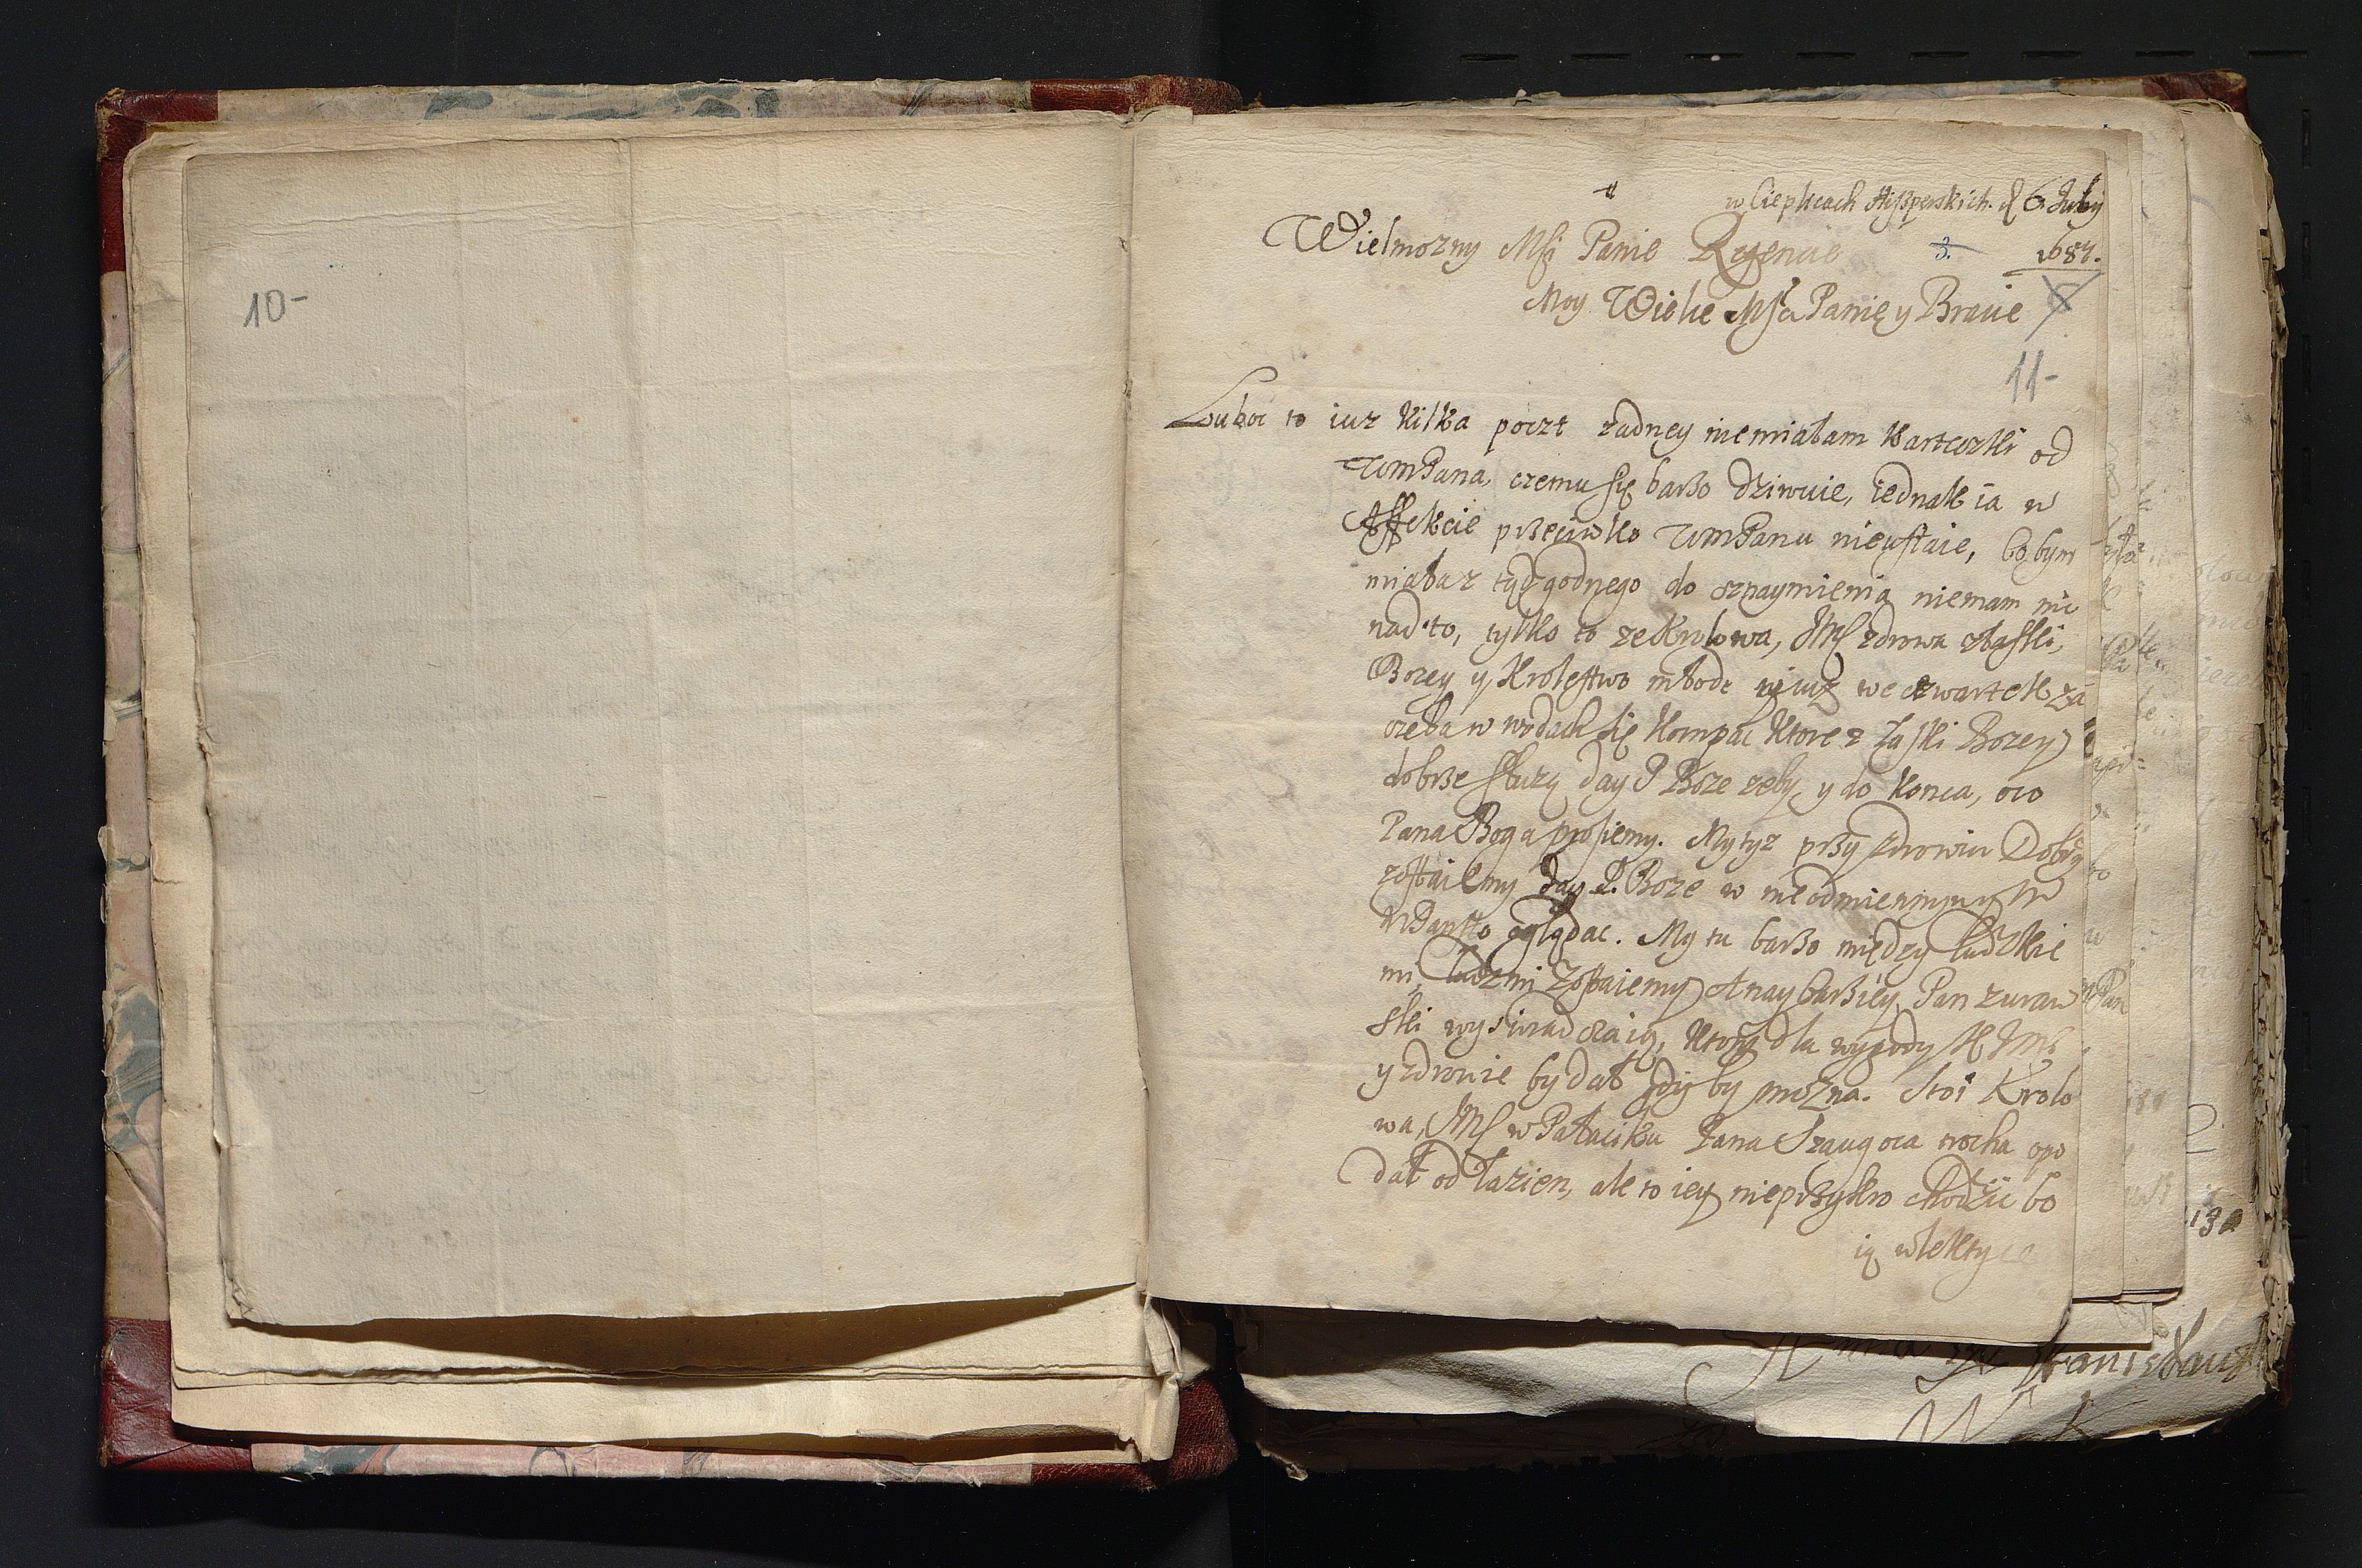 10-
w Cieplicach Hißperskich. d 6 July
1687.
Wielmozny Msci Panie Regencie
3.
Moy Wielce Msci Panie y Bracie
11-
Luboc to iuz kilka poczt zadney niemiałam karteczki od
WmPana, czemu się barzo dziwuie, iednak ia w
Affekcie przeciwko WmPanu nieustaie, bo bym
miała z tąd godnego do oznaymienia niemam nic
nad to, tylko to ze Krolowa, JMs zdrowa z łaski,
Bozey y Krolestwo młode iuz we czwartek za
częła w wodach się kompac ktore z łaski Bozey
dobrze słuzą day P Boze zeby, y do konca, oco
Pana Boga prosiemy. My tyz przy zdrowiu Dobrÿ
zostaiemy day P. Boze w nieodmiennym
WPanstwo oglądac. My tu barzo między ludzkie
mi, ludzmi zostaiemy A naybarziey Pan zuraw
ski wyswiadczaią, ktory dla wygody K JMs
y zdrowie by dał gdyby mozna. Stoi Krolo
wa, JMs w Pałaciku Pana Szaugoca trocha opo
dal od łazien, ale to iey nieprzykro chodzic bo
ią w lektyce
13
Stanisław